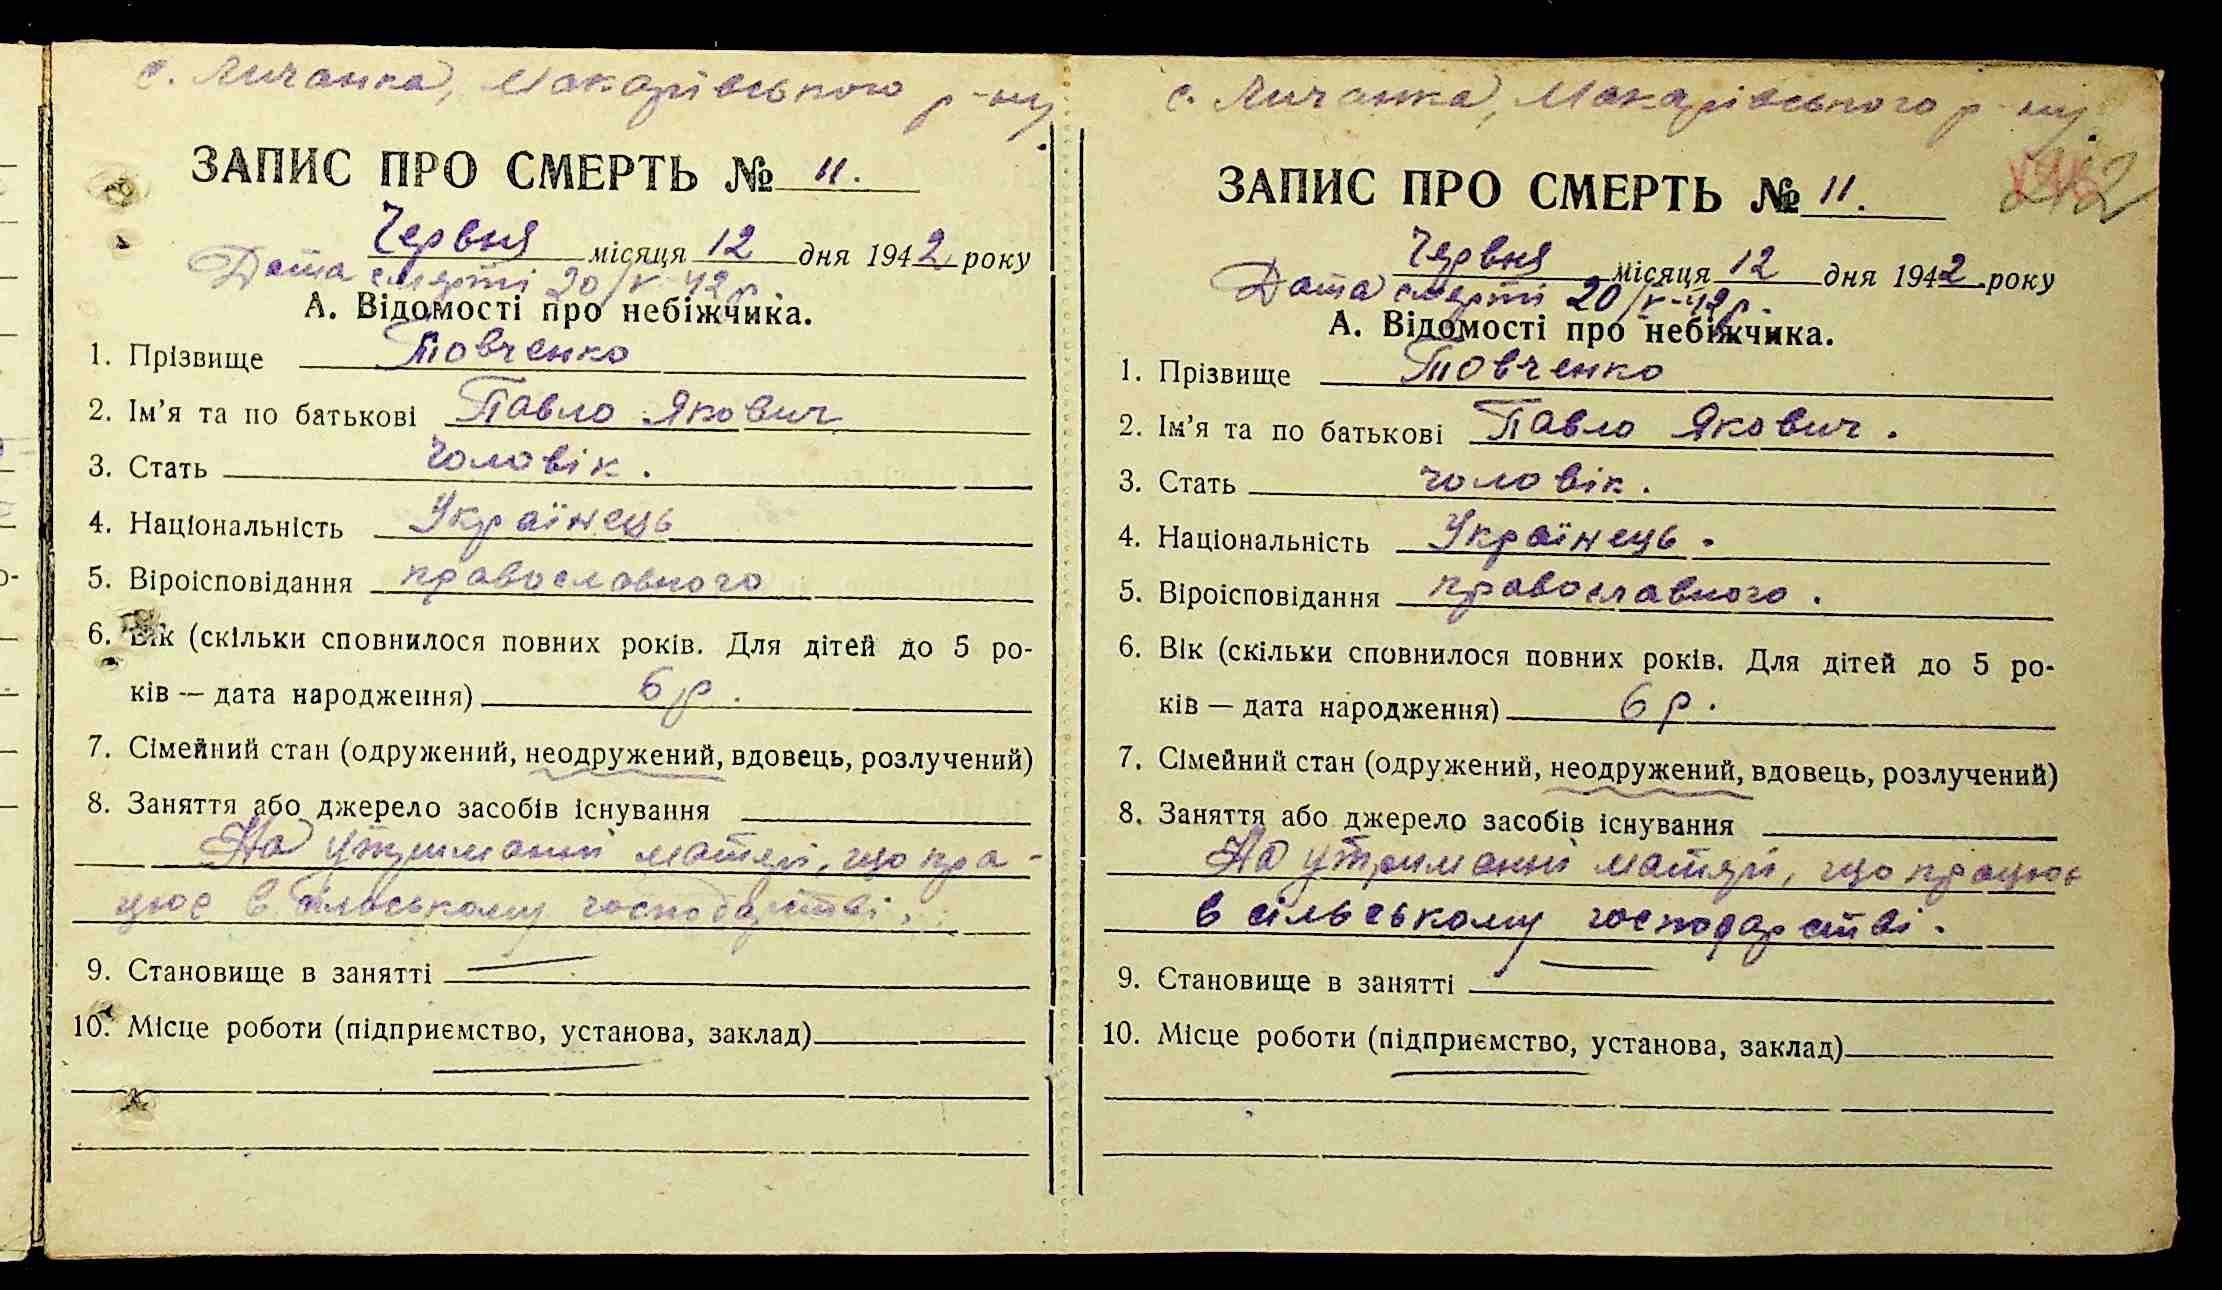 с. Личанка, Макарівського р-ну.
ЗАПИС ПРО СМЕРТЬ № 11.
Червня місяця 12 дня 1942 року
Дата смерті 20/V-42 р.
А. Відомості про небіжчика.
1. Прізвище Товченко
2. Ім'я та по батькові Павло Якович
3. Стать чоловік.
4. Національність Українець
5. Віроісповідання православного
6. Вік (скільки сповнилося повних років. Для дітей до 5 ро-
ків — дата народження) 6 р.
7. Сімейний стан (одружений, неодружений, вдовець, розлучений)
8. Заняття або джерело засобів існування
На утриманні матері, що пра-
цює в сільському господарстві.
9. Становище в занятті —
10. Місце роботи (підприємство, установа, заклад)
—
с. Личанка, Макарівського р-ну.
ЗАПИС ПРО СМЕРТЬ № 11.
Червня місяця 12 дня 1942 року
Дата смерті 20/V-42 р.
А. Відомості про небіжчика.
1. Прізвище Товченко
2. Ім'я та по батькові Павло Якович.
3. Стать чоловік.
4. Національність Українець.
5. Віроісповідання православного.
6. Вік (скільки сповнилося повних років. Для дітей до 5 ро-
ків — дата народження) 6 р.
7. Сімейний стан (одружений, неодружений, вдовець, розлучений)
8. Заняття або джерело засобів існування
На утриманні матері, що працює
в сільському господарстві.
9. Становище в занятті —
10. Місце роботи (підприємство, установа, заклад)
—